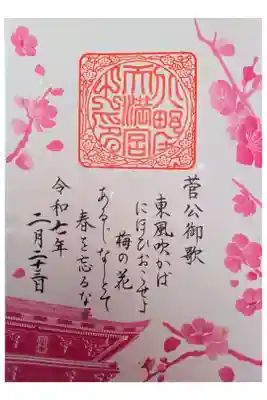 天満宮
菅公御歌
東風吹かば
にほひおこせよ
梅の花
あるじなしとて
春を忘るな
令和七年
二月二十三日